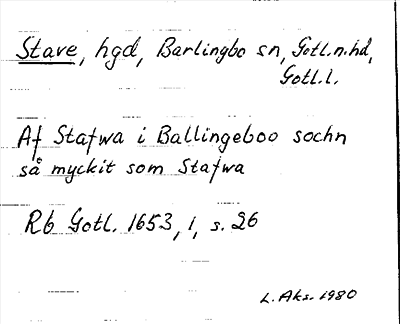 Stave, hgd, Barlingbo sn, Gotl.n.hd,
Gotl.l.
Af Stafwa i Ballingeboo sochn
så myckit som Stafwa
Rb Gotl. 1653, 1, s. 26
L. Aks. 1980